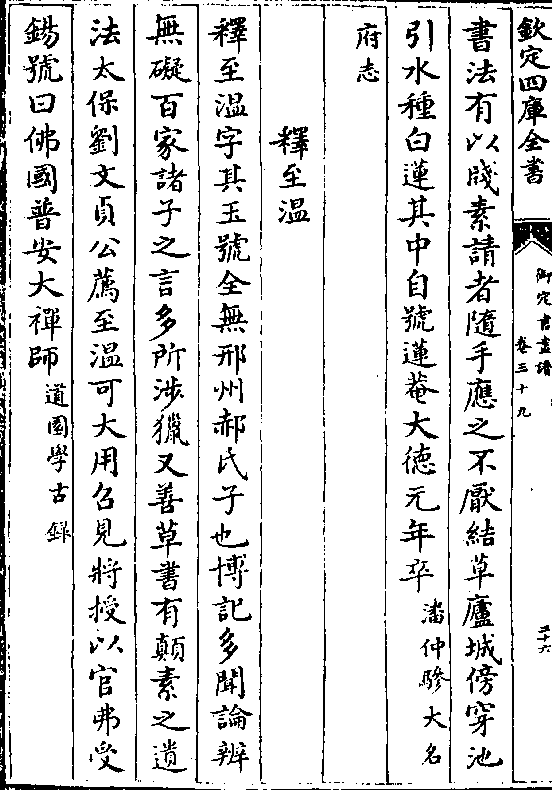 欽定四庫全書
御定書畫譜
卷三十九
二十六
書法有以牋素請者隨手應之不厭結草廬城傍穿池
引水種白蓮其中自號蓮菴大德元年卒潘仲驂大名
府志
釋至溫
釋至溫字其玉號全無邢州郝氏子也博記多聞論辨
無礙百家諸子之言多所涉獵又善草書有顛素之遺
法太保劉文貞公薦至溫可大用召見將授以官弗受
錫號曰佛國普安大禪師道園學古錄